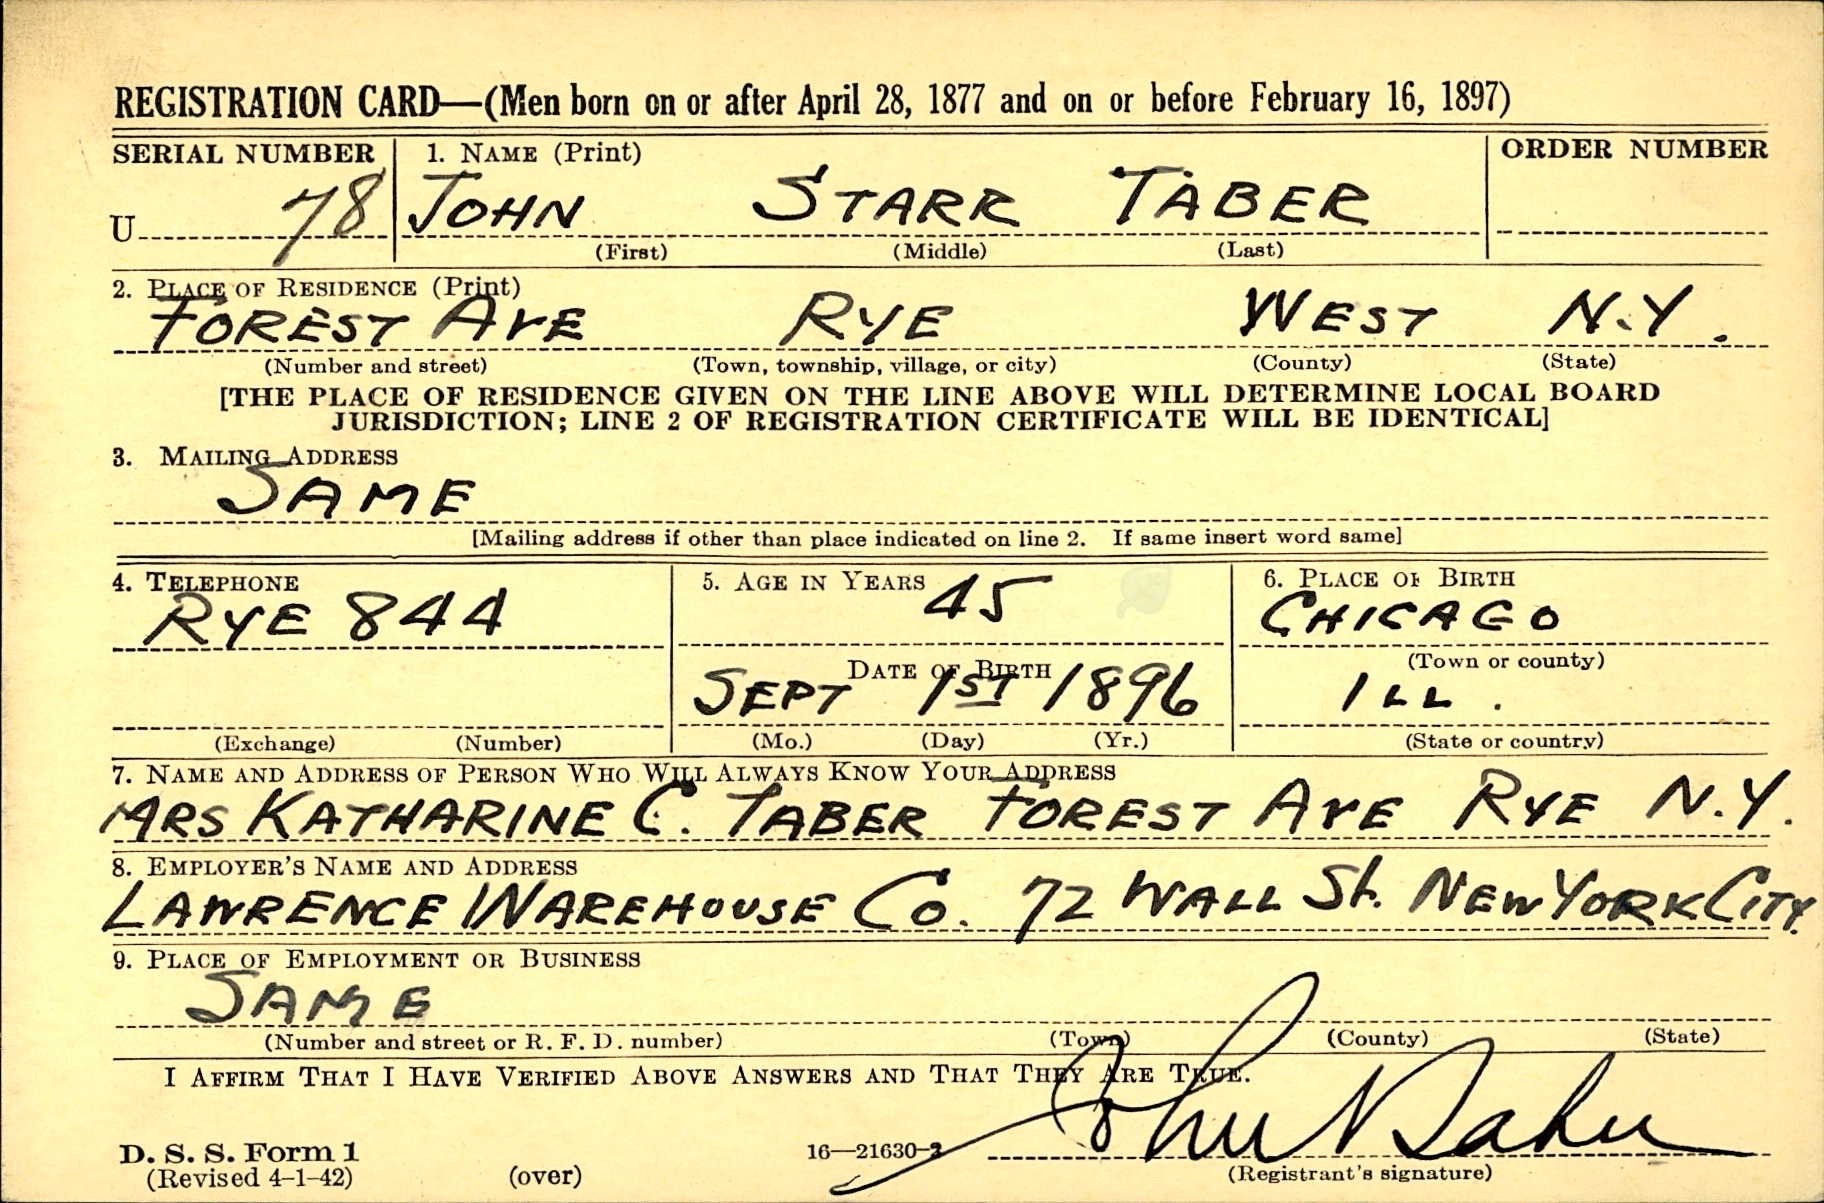 REGISTRATION CARD—(Men born on or after April 28, 1877 and on or before February 16, 1897)
SERIAL NUMBER 1. NAME (Print) ORDER NUMBER
U 78 JOHN STARR TABER
(First) (Middle) (Last)
2. PLACE OF RESIDENCE (Print)
FOREST AVE RYE WEST N.Y.
(Number and street) (Town, township, village, or city) (County) (State)
[THE PLACE OF RESIDENCE GIVEN ON THE LINE ABOVE WILL DETERMINE LOCAL BOARD
JURISDICTION; LINE 2 OF REGISTRATION CERTIFICATE WILL BE IDENTICAL]
3. MAILING ADDRESS
SAME
[Mailing address if other than place indicated on line 2. If same insert word same]
4. TELEPHONE 5. AGE IN YEARS 6. PLACE OF BIRTH
RYE 844 45 CHICAGO
(Town or county)
DATE OF BIRTH
SEPT 1ST 1896 ILL.
(Exchange) (Number) (Mo.) (Day) (Yr.) (State or country)
7. NAME AND ADDRESS OF PERSON WHO WILL ALWAYS KNOW YOUR ADDRESS
MRS KATHARINE C. TABER FOREST AVE RYE N.Y.
8. EMPLOYER'S NAME AND ADDRESS
LAWRENCE WAREHOUSE CO. 72 WALL St. NEW YORK CITY.
9. PLACE OF EMPLOYMENT OR BUSINESS
SAME
(Number and street or R. F. D. number) (Town) (County) (State)
I AFFIRM THAT I HAVE VERIFIED ABOVE ANSWERS AND THAT THEY ARE TRUE.
D. S. S. Form 1 16—21630-2 John S Taber
(Revised 4-1-42) (over) (Registrant's signature)